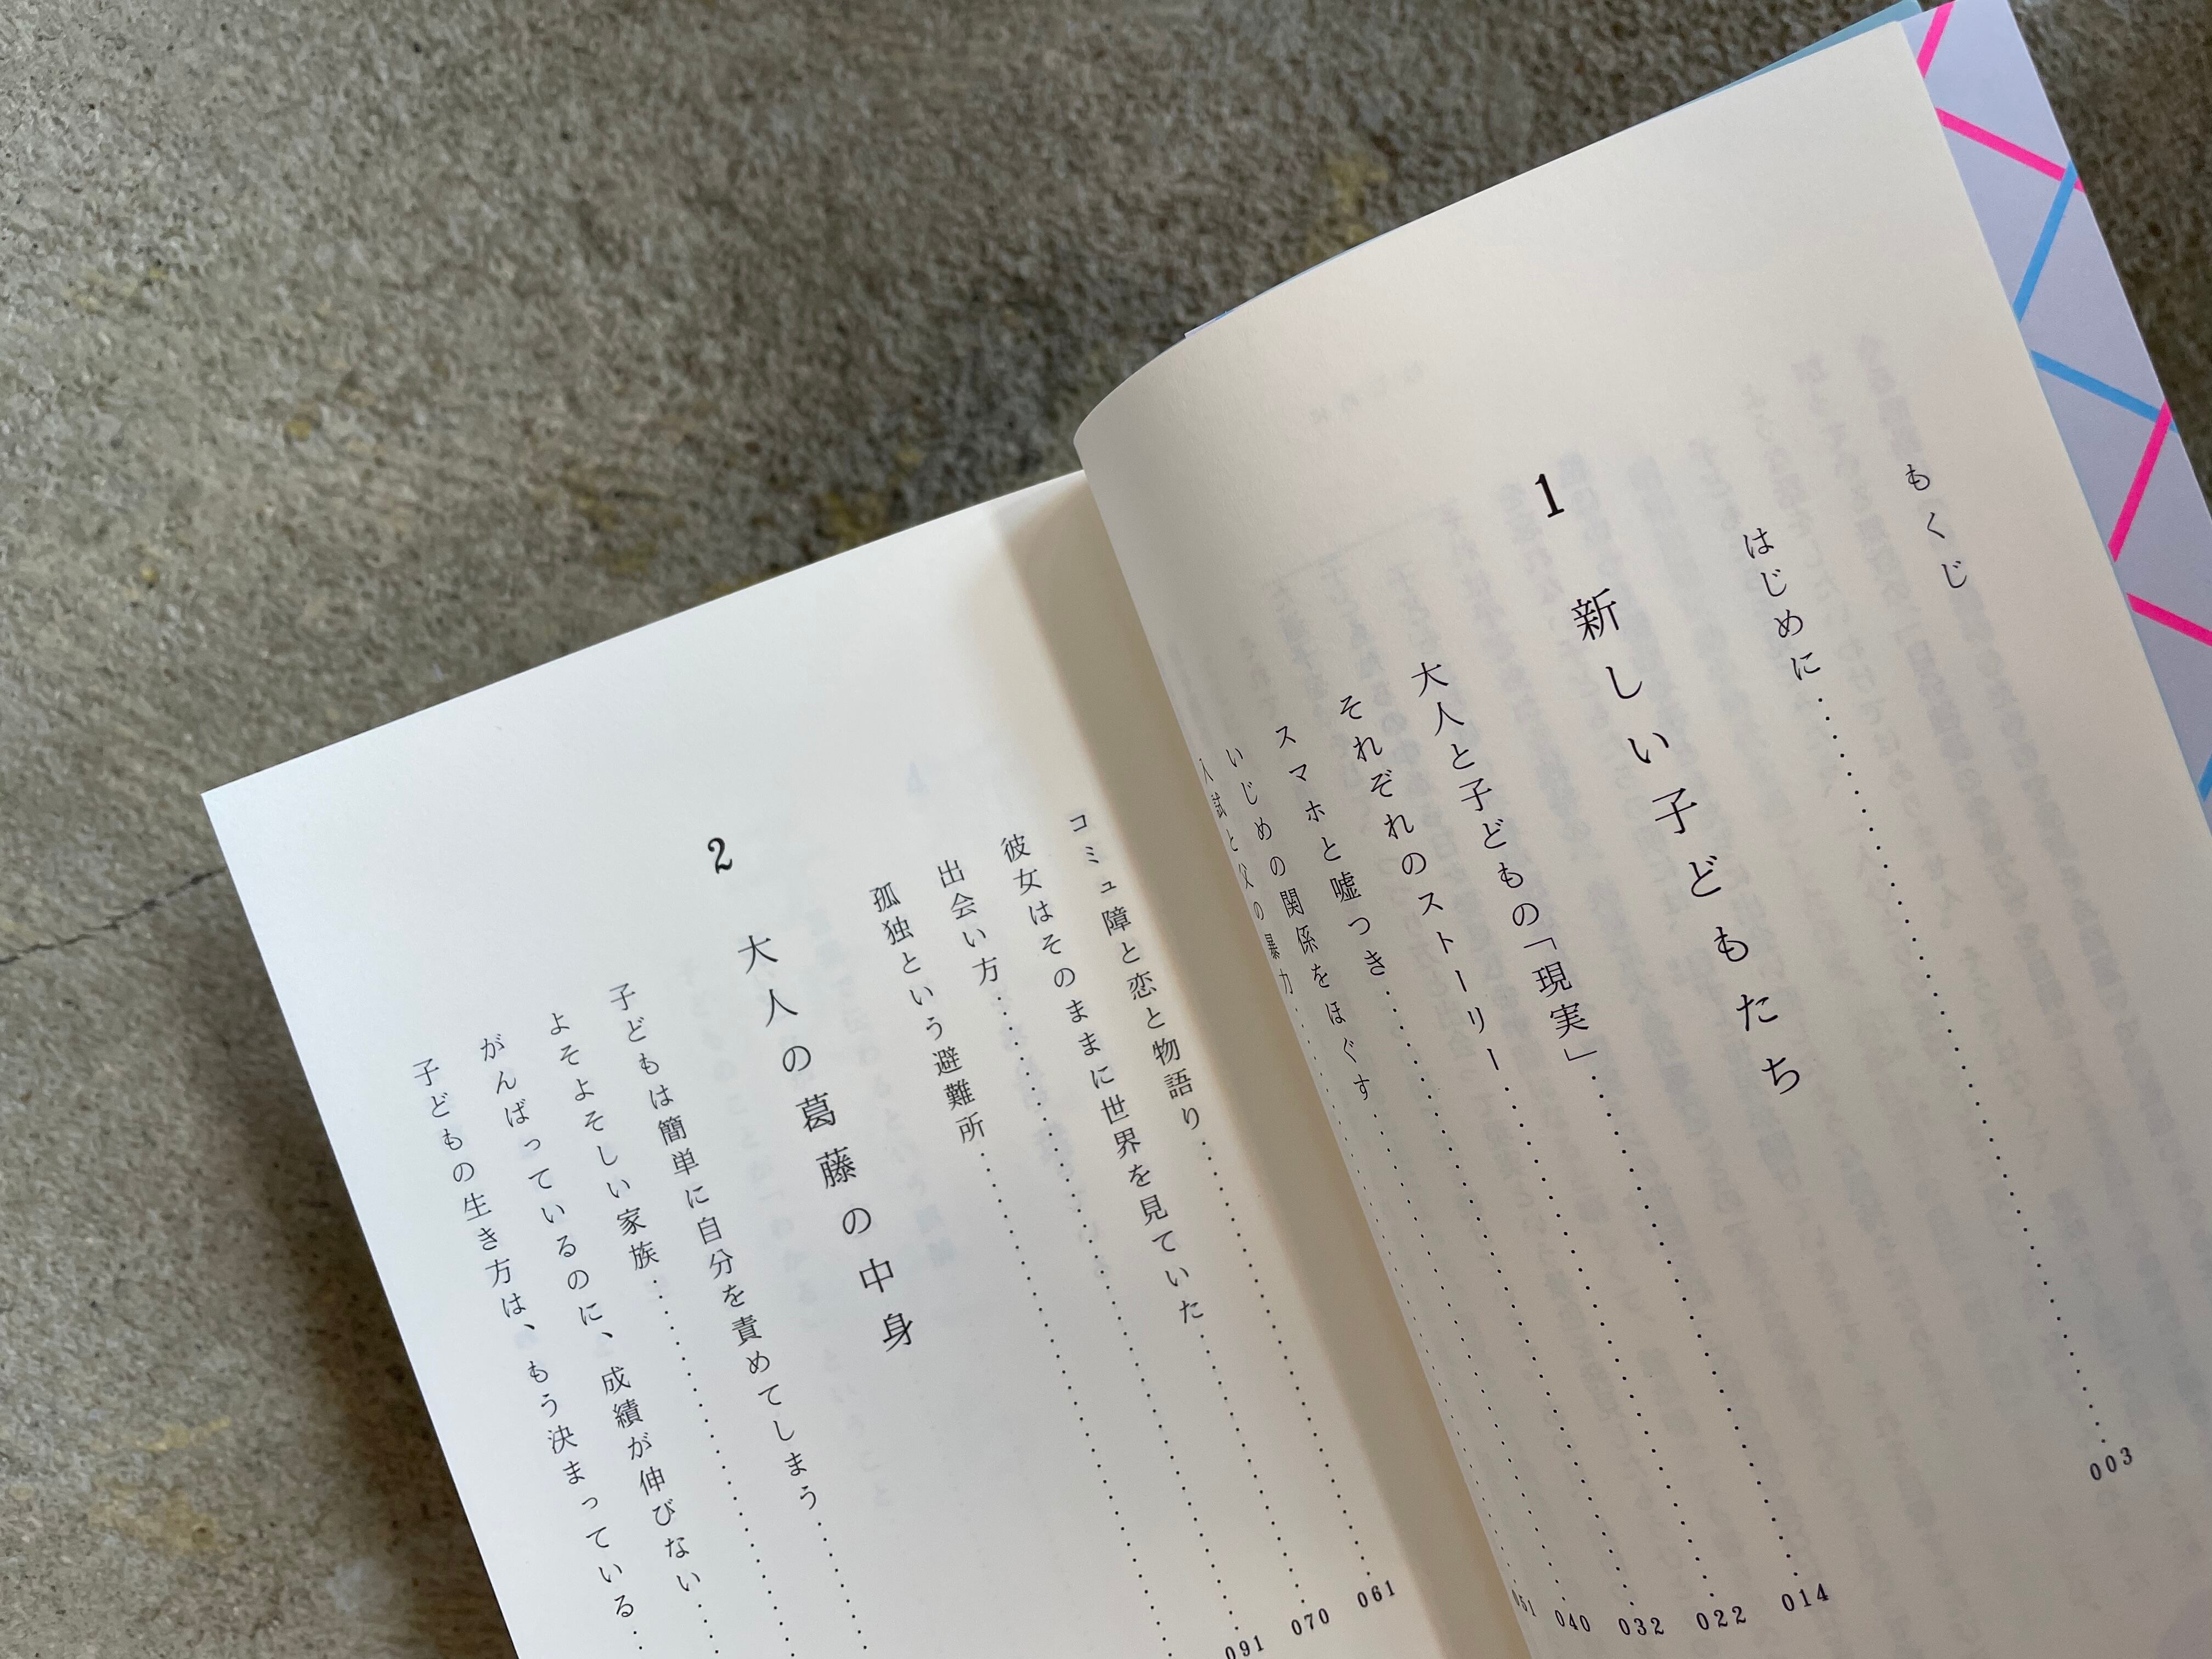 もくじ
はじめに……003
1 新しい子どもたち
大人と子どもの「現実」……014
それぞれのストーリー……022
スマホと嘘つき……032
いじめの関係をほぐす……040
入試と父の暴力……051
コミュ障と恋と物語り……061
彼女はそのままに世界を見ていた……070
出会い方……091
孤独という避難所……
2 大人の葛藤の中身
子どもは簡単に自分を責めてしまう……
よそよそしい家族……
がんばっているのに、成績が伸びない……
子どもの生き方は、もう決まっている……